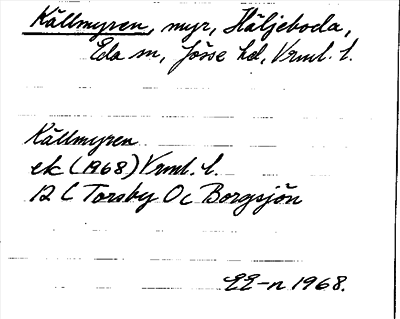 Källmyren, myr, Häljeboda,
Eda sn, Jösse hd, Vrml. l.
Källmyren
ek (1968) Vrml. l.
12 C Torsby 0c Borgsjön
EE-n 1968.